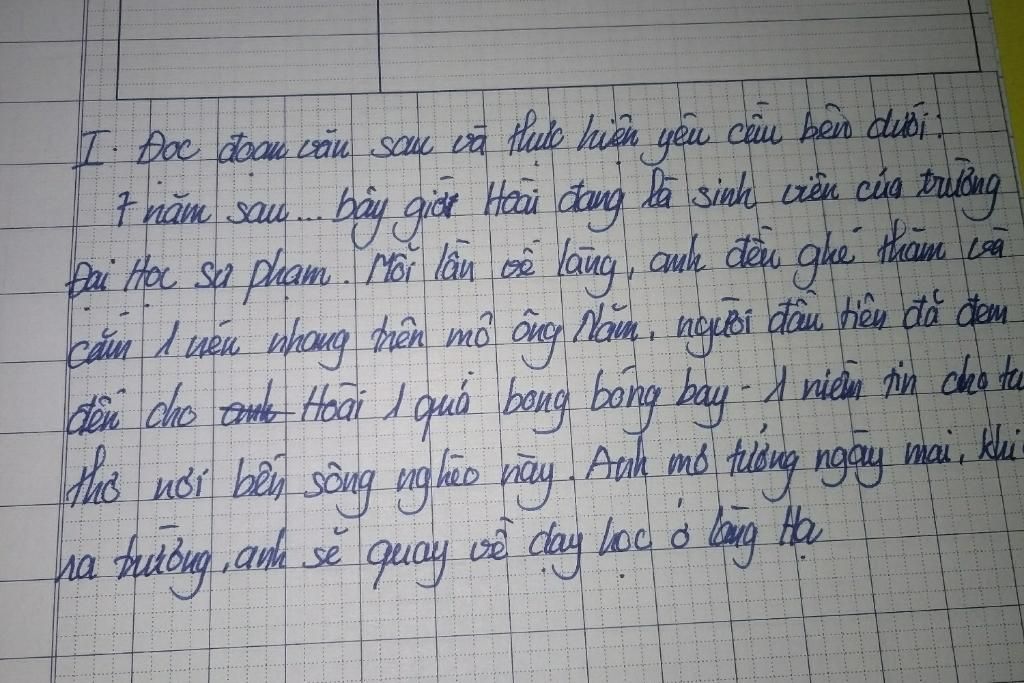 I. Đọc đoạn văn sau và thực hiện yêu cầu bên dưới:
7 năm sau... bây giờ Hoài đang là sinh viên của trường
Đại Học Sư phạm. Mỗi lần về làng, anh đều ghé thăm và
cắm 1 nén nhang trên mộ ông Năm, người đầu tiên đã đem
đến cho anh Hoài 1 quả bong bóng bay - 1 niềm tin cho tu
thơ nơi bến sông nghèo này. Anh mơ tưởng ngày mai, khi
ra trường, anh sẽ quay về dạy học ở làng Hạ